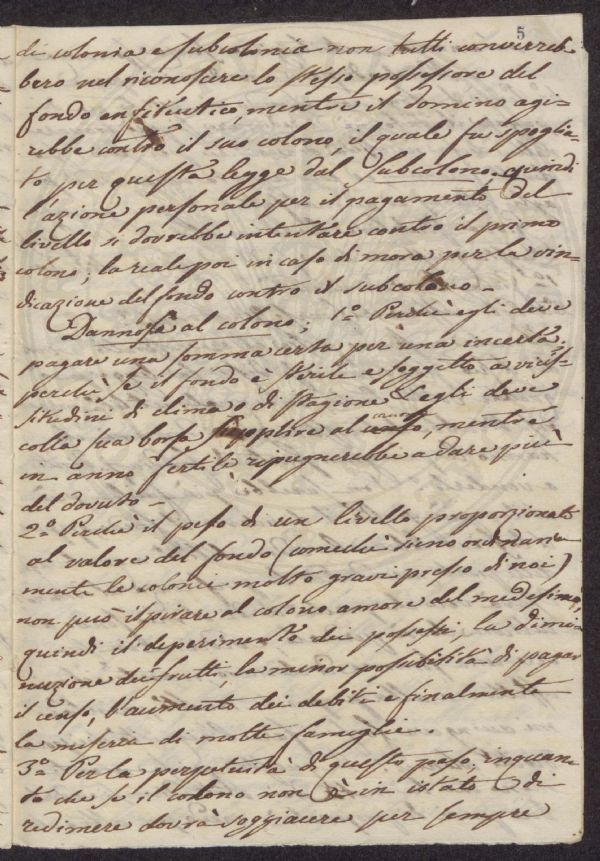 5
di colonia e subcolonia non tutti converreb-
bero nel riconoscere lo stesso possessore del
fondo enfiteutico, mentre il domino agi-
rebbe contro il suo colono, il quale fu spoglia-
to per questa legge dal Subcolono, quindi
l'azione personale per il pagamento del
livello si dovrebbe intentare contro il primo
colono; la reale poi in caso di mora per la vin-
dicazione del fondo contro il subcolono -
Dannosa al colono; 1.o Perchè egli deve
pagare una somma certa per una incerta,
perchè se il fondo è sterile e soggetto a vicis-
situdini di clima o di stagione egli deve
colla sua borsa supplire al canone, mentre
in anno fertile ripugnerebbe a dare più
del dovuto -
2.o Perchè il peso di un livello proporzionato
al valore del fondo (comechè sieno ordinaria
mente le colonie molto gravi presso di noi)
non può ispirare al colono amore del medesimo,
quindi il deperimento dei possessi, la dimi-
nuzione dei frutti, la minor possibilità di pagar
il censo, l'aumento dei debiti e finalmente
la miseria di molte famiglie.
3.o Per la perpetuità di questo peso, inquan-
to che se il colono non è in istato di
redimere dovrà soggiacere per sempre